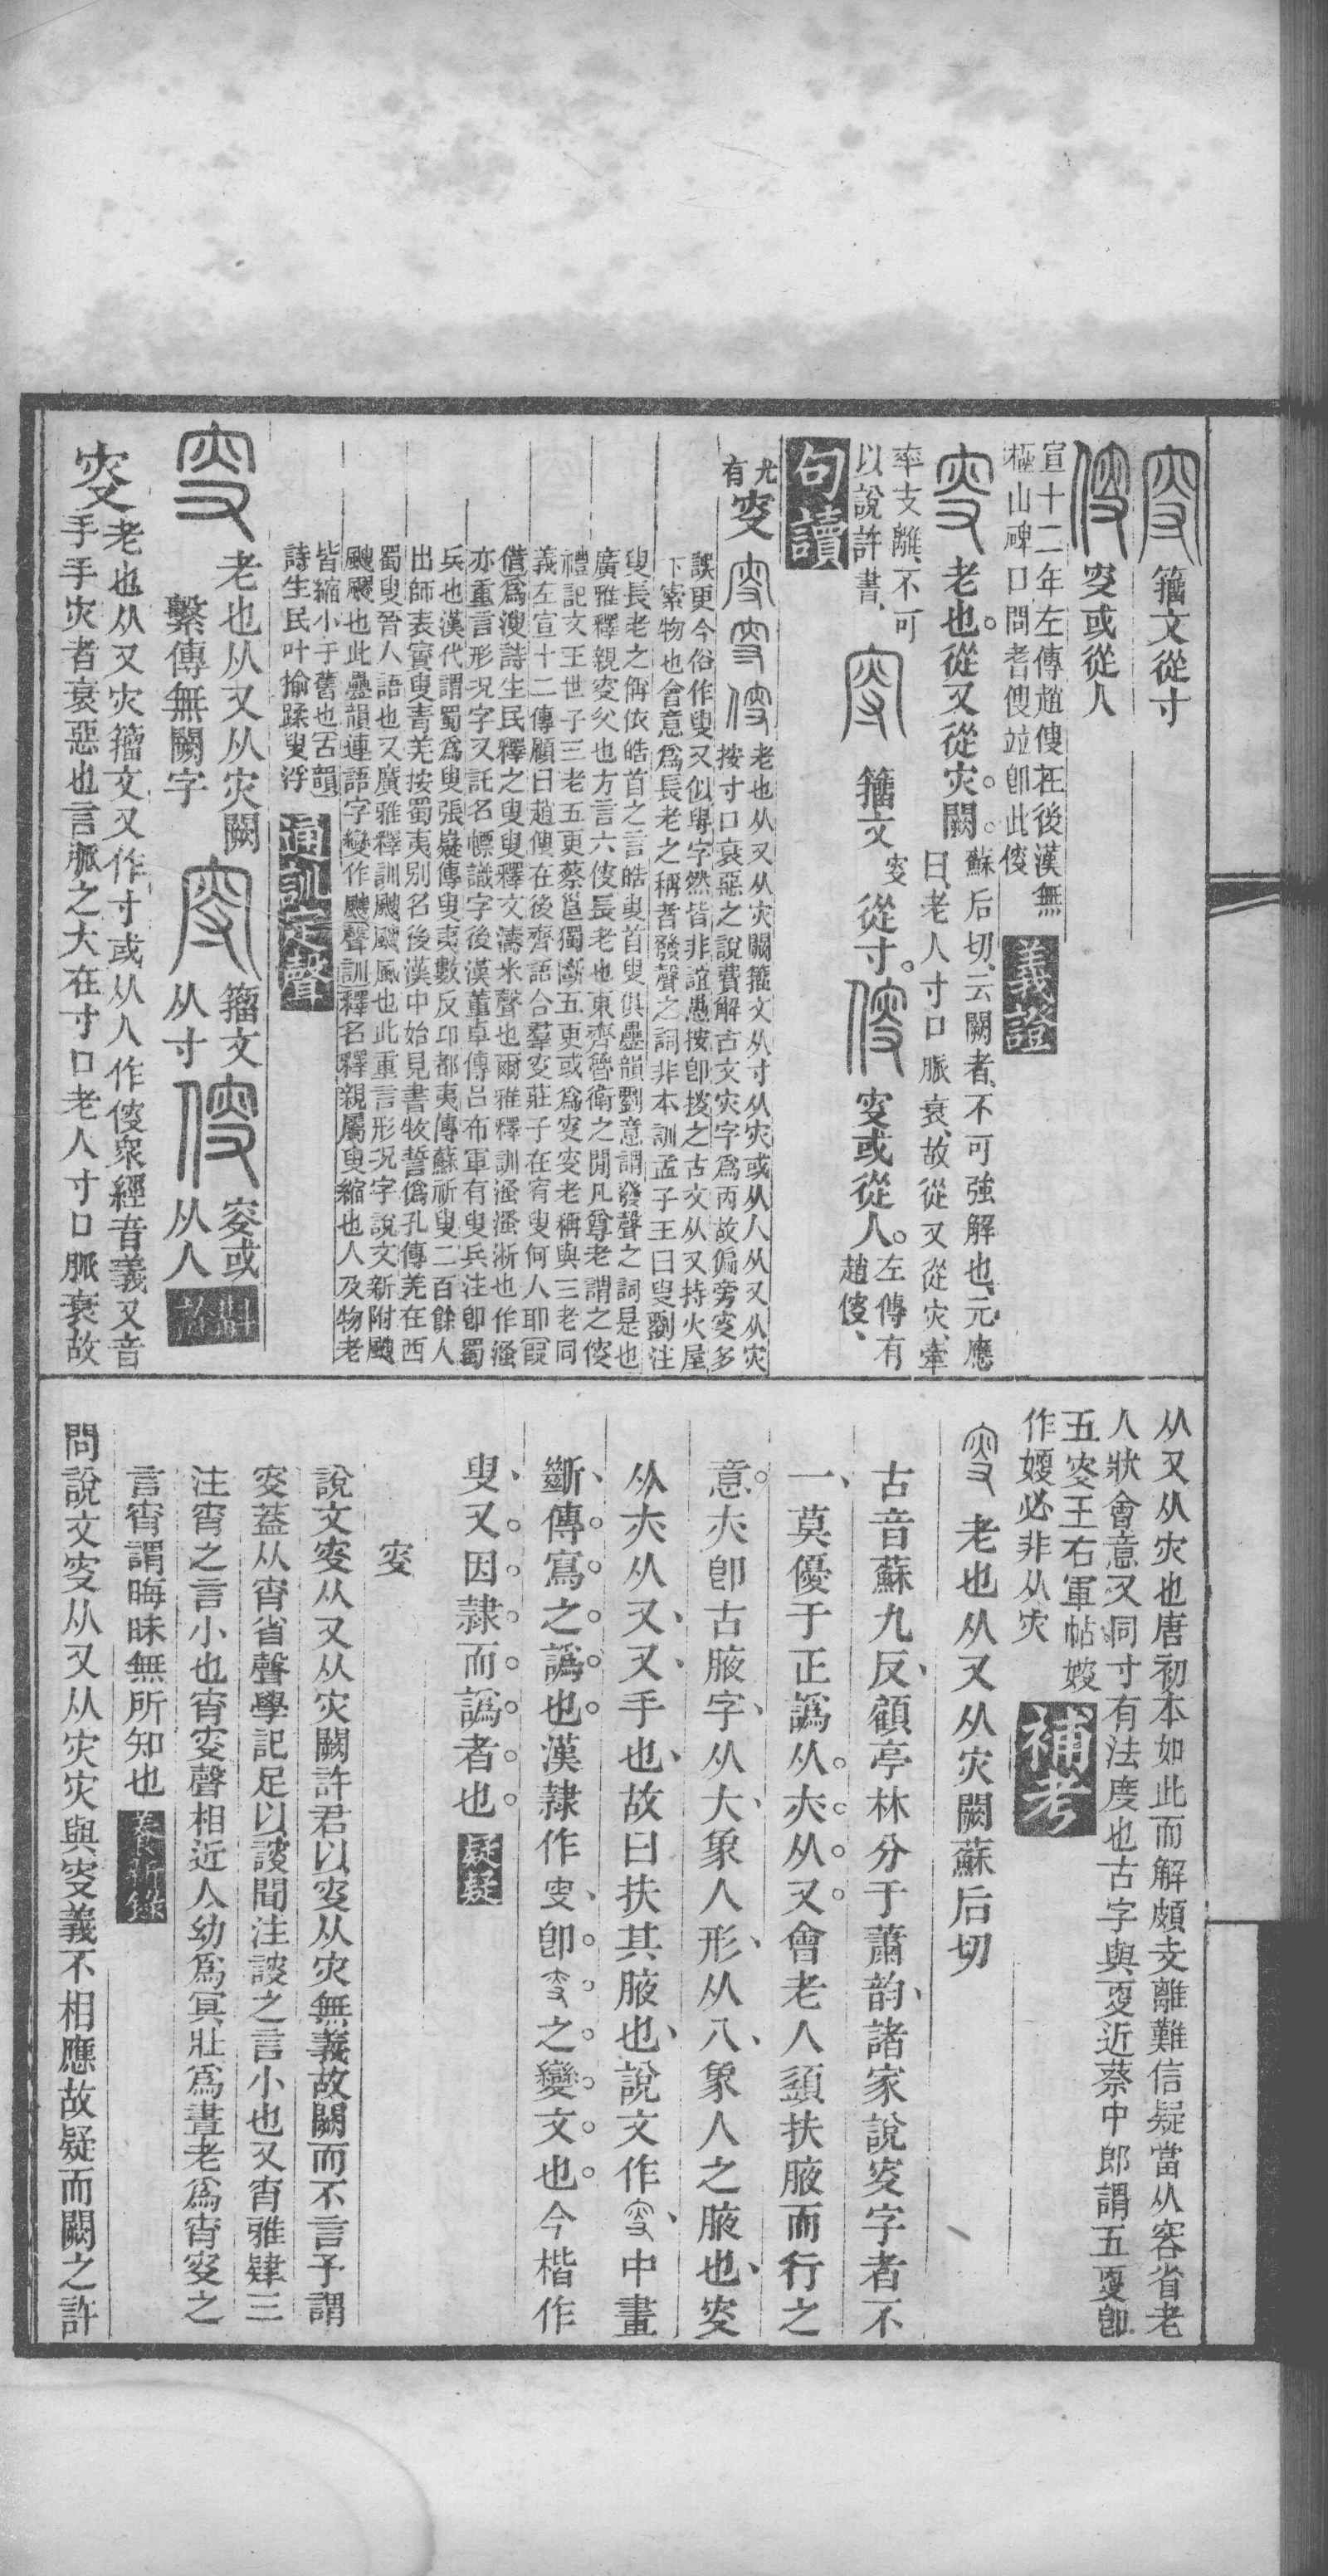 籀文從寸
叜或從人
宣十二年左傳趙傁在後漢無
極山碑口問耆傁竝卽此傁
義證
老也。從又從灾。闕。
蘇后切、云闕者、不可強解也、元應
曰、老人寸口脈衰、故從又從灾、牽
率支離、不可
以說許書、
籀文叜從寸。
叜或從人。
左傳有
趙傁、
句讀
尤有
叜
老也从又从灾闕籀文从寸从灾或从人从又从灾
按寸口衰惡之說費解古文灾字爲丙故偏旁叜多
誤更今俗作叟又似𦥑字然皆非誼愚按卽搜之古文从又持火屋
下索物也會意爲長老之稱者發聲之詞非本訓孟子王曰叟劉注
叟長老之偁依皓首之言皓叟首叟俱疊韻劉意謂發聲之詞是也
廣雅釋親叜父也方言六傁長老也東齊魯衛之閒凡尊老謂之傁
禮記文王世子三老五更蔡邕獨斷五更或爲叜叜老稱與三老同
義左宣十二傳顧曰趙傁在後齊語合羣叜莊子在宥叟何人耶叚
借爲溲詩生民釋之叟叟釋文濤米聲也爾雅釋訓溞溞淅也作溞
亦重言形況字又託名幖識字後漢董卓傳呂布軍有叟兵注卽蜀
兵也漢代謂蜀爲叟張嶷傳叟夷數反邛都夷傳蘇祈叟二百餘人
出師表賨叟青羌按蜀夷別名後漢中始見書牧誓僞孔傳羌在西
蜀叟晉人語也又廣雅釋訓颼颼風也此重言形況字說文新附颼
颼飂也此疊韻連語字變作颼聲訓釋名釋親屬叟縮也人及物老
皆縮小于舊也古韻
詩生民叶揄蹂叟浮
通訓定聲
老也从又从灾闕
繫傳無闕字
籀文
从寸
叜或
从人
斠詁
叜
老也从又灾籀文又作寸或从人作傁衆經音義又音
手手灾者衰惡也言脈之大在寸口老人寸口脈衰故
从又从灾也唐初本如此而解頗支離難信疑當从容省老
人狀會意又同寸有法度也古字與叜近蔡中郎謂五叜卽
五叜王右軍帖㛐
作嫂必非从灾
補考
老也从又从灾闕蘇后切
古音蘇九反、顧亭林分于蕭韵、諸家說叜字者不
一、莫優于正譌从㚒。从又。會老人頭扶腋而行之
意。㚒卽古腋字、从大、象人形、从八、象人之腋也、叜
从㚒从又、又、手也、故曰扶其腋也、說文作、中畫
斷、傳。寫。之。譌。也。漢隸作叟、卽。之。變。文。也。今楷作
叟、又。因。隸。而。譌。者。也。
疑疑
叜
說文叜从又从灾闕許君以叜从灾無義故闕而不言予謂
叜蓋从宵省聲學記足以謏聞注謏之言小也又宵雅肄三
注宵之言小也宵叜聲相近人幼爲冥壯爲晝老爲宵叜之
言宵謂晦昧無所知也
養新錄
問說文叜从又从灾灾與叜義不相應故疑而闕之許